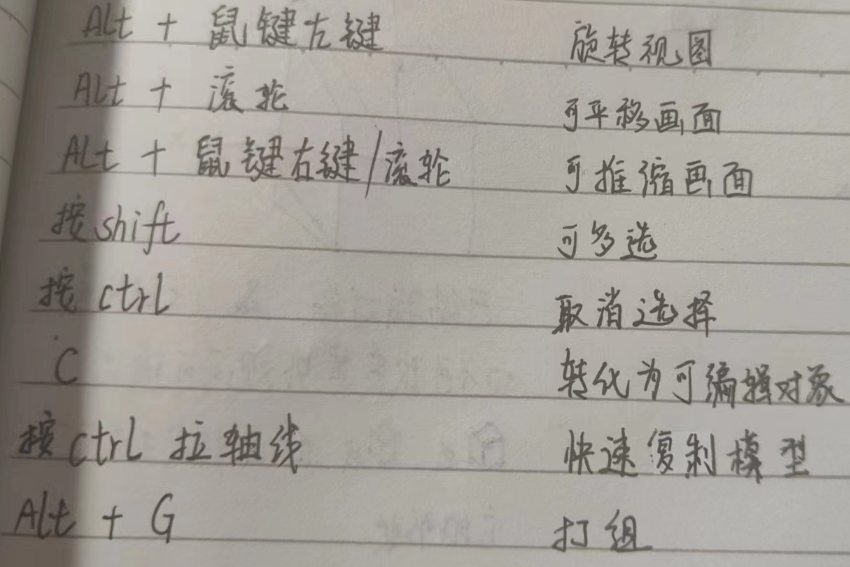 Alt + 鼠键左键 旋转视图
Alt + 滚轮 可平移画面
Alt + 鼠键右键/滚轮 可推缩画面
按shift 可多选
按ctrl 取消选择
C 转化为可编辑对象
按ctrl 拉轴线 快速复制模型
Alt + G 打组